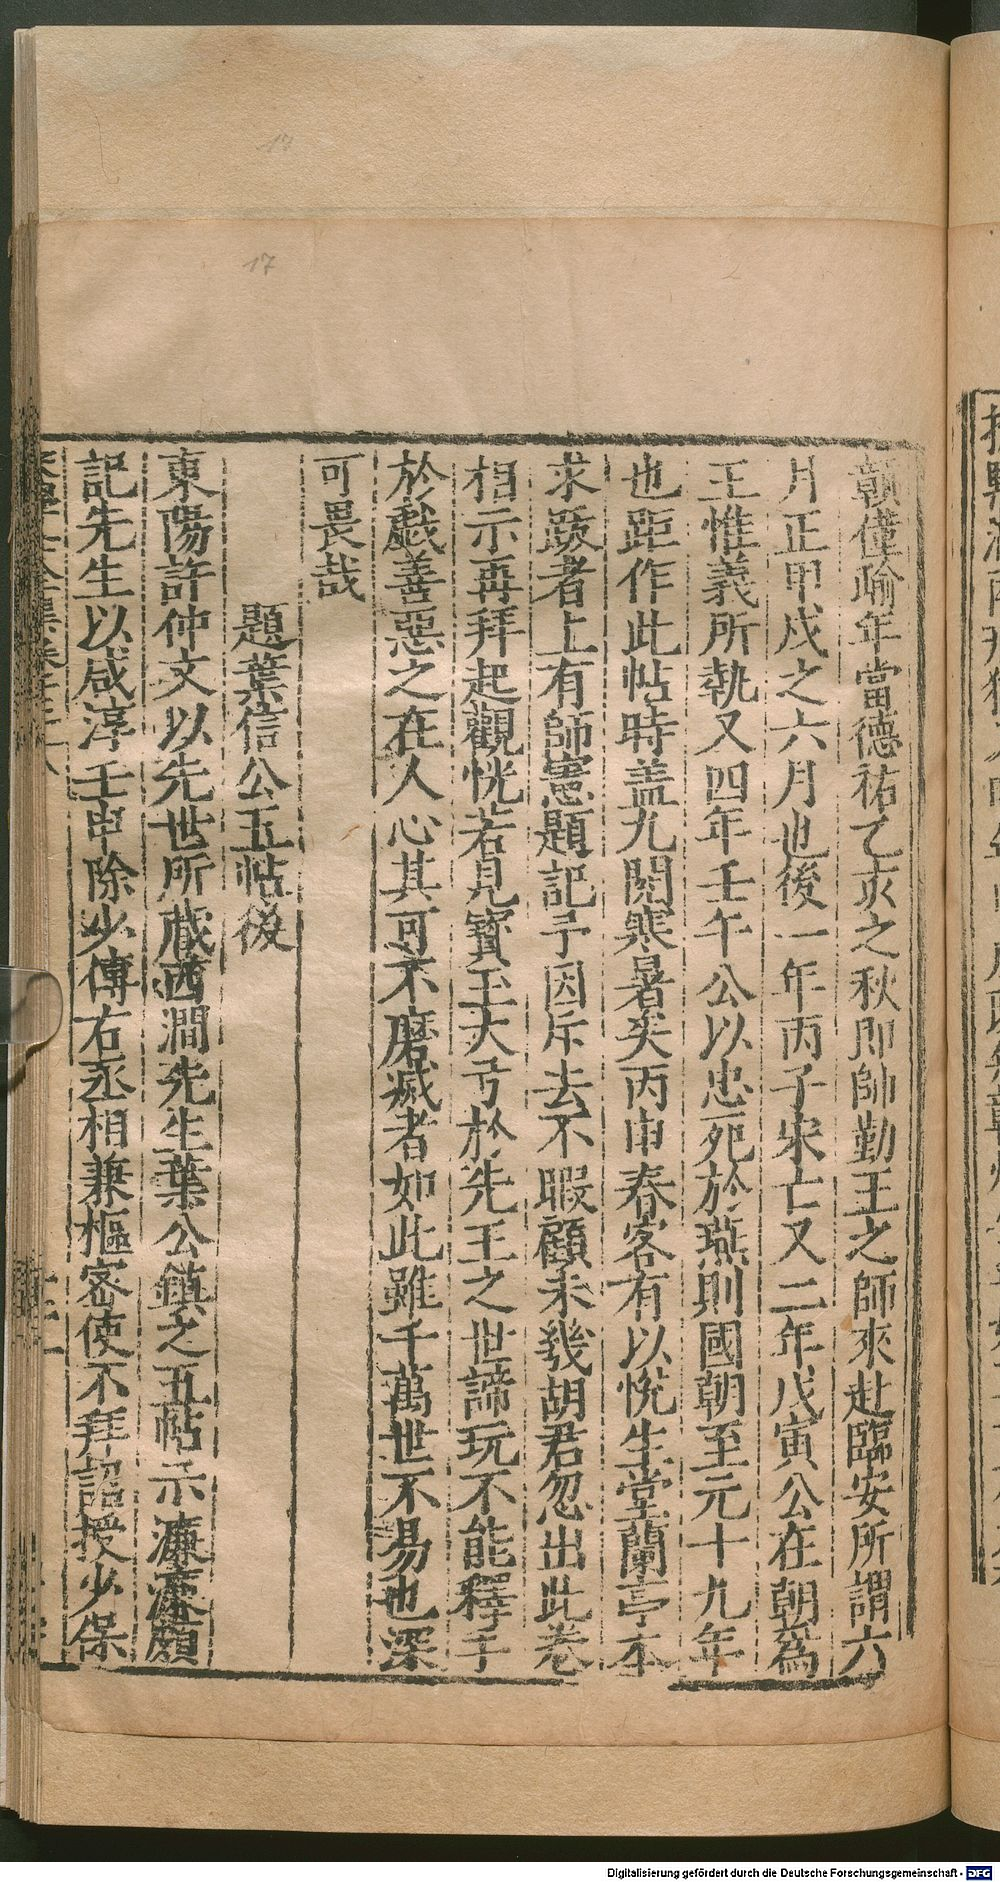 顛僅踰年當德祐乙亥之秋即帥勤王之師來赴臨安所謂六
月正甲戌之六月也後一年丙子宋亡又二年戊寅公在朝為
王惟義所執又四年壬午公以忠死於燕則國朝至元十九年
也距作此帖時盖九閱寒暑矣丙申春客有以悅生堂蘭亭本
求跋者上有師憲題記予因斥去不暇顧未幾胡君忽出此卷
相示再拜起觀恍若見寳玉大弓於先王之世諦玩不能釋手
於戲善惡之在人心其可不磨滅者如此雖千萬世不易也深
可畏哉
題葉信公五帖後
東陽許仲文以先世所藏西澗先生葉公鎮之五帖示濂濂頗
記先生以咸淳壬申除少傅右丞相兼樞密使不拜詔授少保
17
17
Digitalisierung gefördert durch die Deutsche Forschungsgemeinschaft - DFG